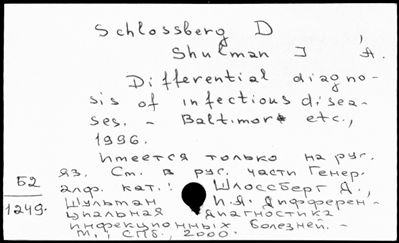 Schlossberg D
Shulman I A.
Differential diagno-
sis of infectious disea-
ses. - Baltimore etc.,
1996.
Имеется только на рус.
яз. См. в рус. части Генер.
алф. кат.: Шлоссберг Д.,
Шульман И.А. Дифферен-
циальная диагностика
инфекционных болезней. -
М.; СПб., 2000.
Б2
1249.